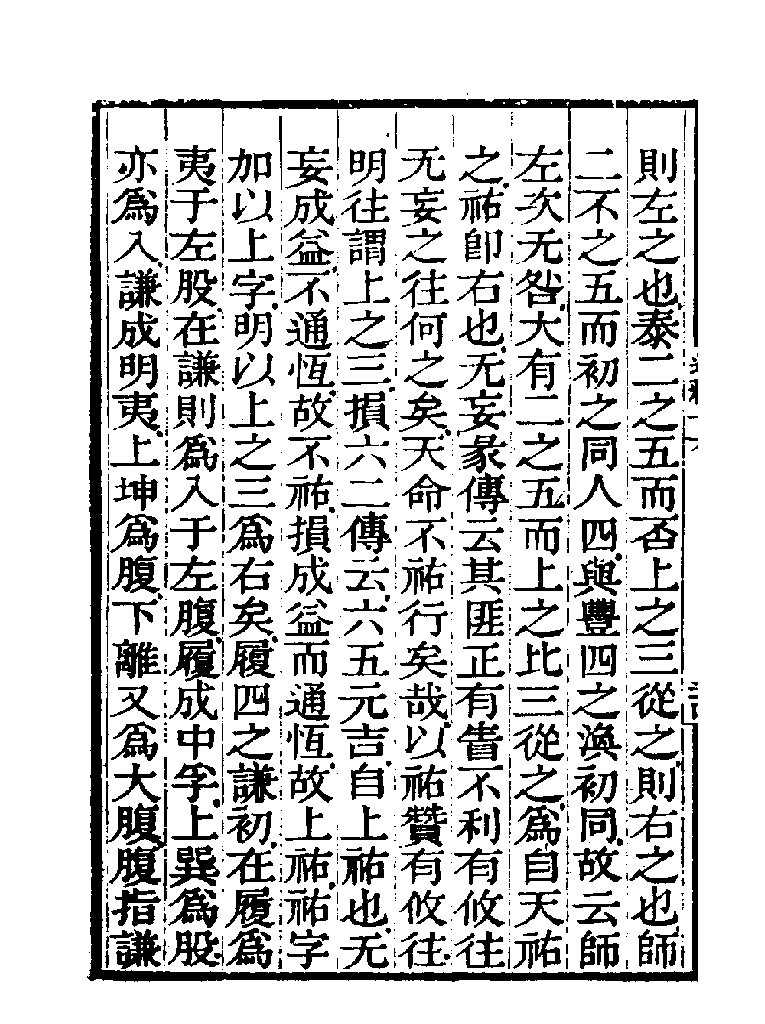 則左之也泰二之五而否上之三從之則右之也師
二不之五而初之同人四與豐四之渙初同故云師
左次无咎大有二之五而上之比三從之爲自天祐
之祐卽右也无妄彖傳云其匪正有眚不利有攸往
无妄之往何之矣天命不祐行矣哉以祐贊有攸往
明往謂上之三損六二傳云六五元吉自上祐也无
妄成益不通恆故不祐損成益而通恆故上祐祐字
加以上字明以上之三爲右矣履四之謙初在履爲
夷于左股在謙則爲入于左腹履成中孚上巽爲股
亦爲入謙成明夷上坤爲腹下離又爲大腹腹指謙